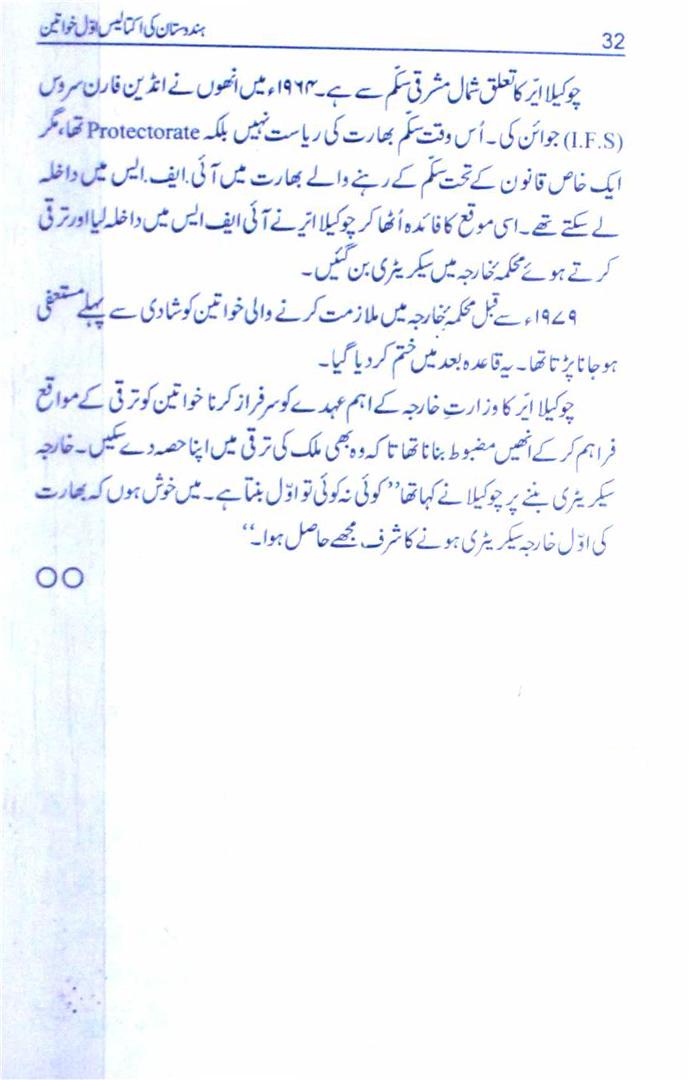 32
ہندوستان کی اکتالیس اوّل خواتین
چوکیلا ایّر کا تعلق شمال مشرقی سکّم سے ہے۔ ۱۹۶۴ء میں انھوں نے انڈین فارن سروس
(I.F.S) جوائن کی۔ اُس وقت سکّم بھارت کی ریاست نہیں بلکہ Protectorate تھا، مگر
ایک خاص قانون کے تحت سکّم کے رہنے والے بھارت میں آئی.ایف.ایس میں داخلہ
لے سکتے تھے۔ اسی موقع کا فائدہ اُٹھا کر چوکیلا ایّر نے آئی ایف ایس میں داخلہ لیا اور ترقی
کرتے ہوئے محکمۂ خارجہ میں سیکریٹری بن گئیں۔
۱۹۷۹ء سے قبل محکمۂ خارجہ میں ملازمت کرنے والی خواتین کو شادی سے پہلے مستعفی
ہو جانا پڑتا تھا۔ یہ قاعدہ بعد میں ختم کر دیا گیا۔
چوکیلا ایّر کا وزارتِ خارجہ کے اہم عہدے کو سرفراز کرنا خواتین کو ترقی کے مواقع
فراہم کر کے انھیں مضبوط بنانا تھا تاکہ وہ بھی ملک کی ترقی میں اپنا حصہ دے سکیں۔ خارجہ
سیکریٹری بننے پر چوکیلا نے کہا تھا ’’کوئی نہ کوئی تو اوّل بنتا ہے۔ میں خوش ہوں کہ بھارت
کی اوّل خارجہ سیکریٹری ہونے کا شرف مجھے حاصل ہوا۔‘‘